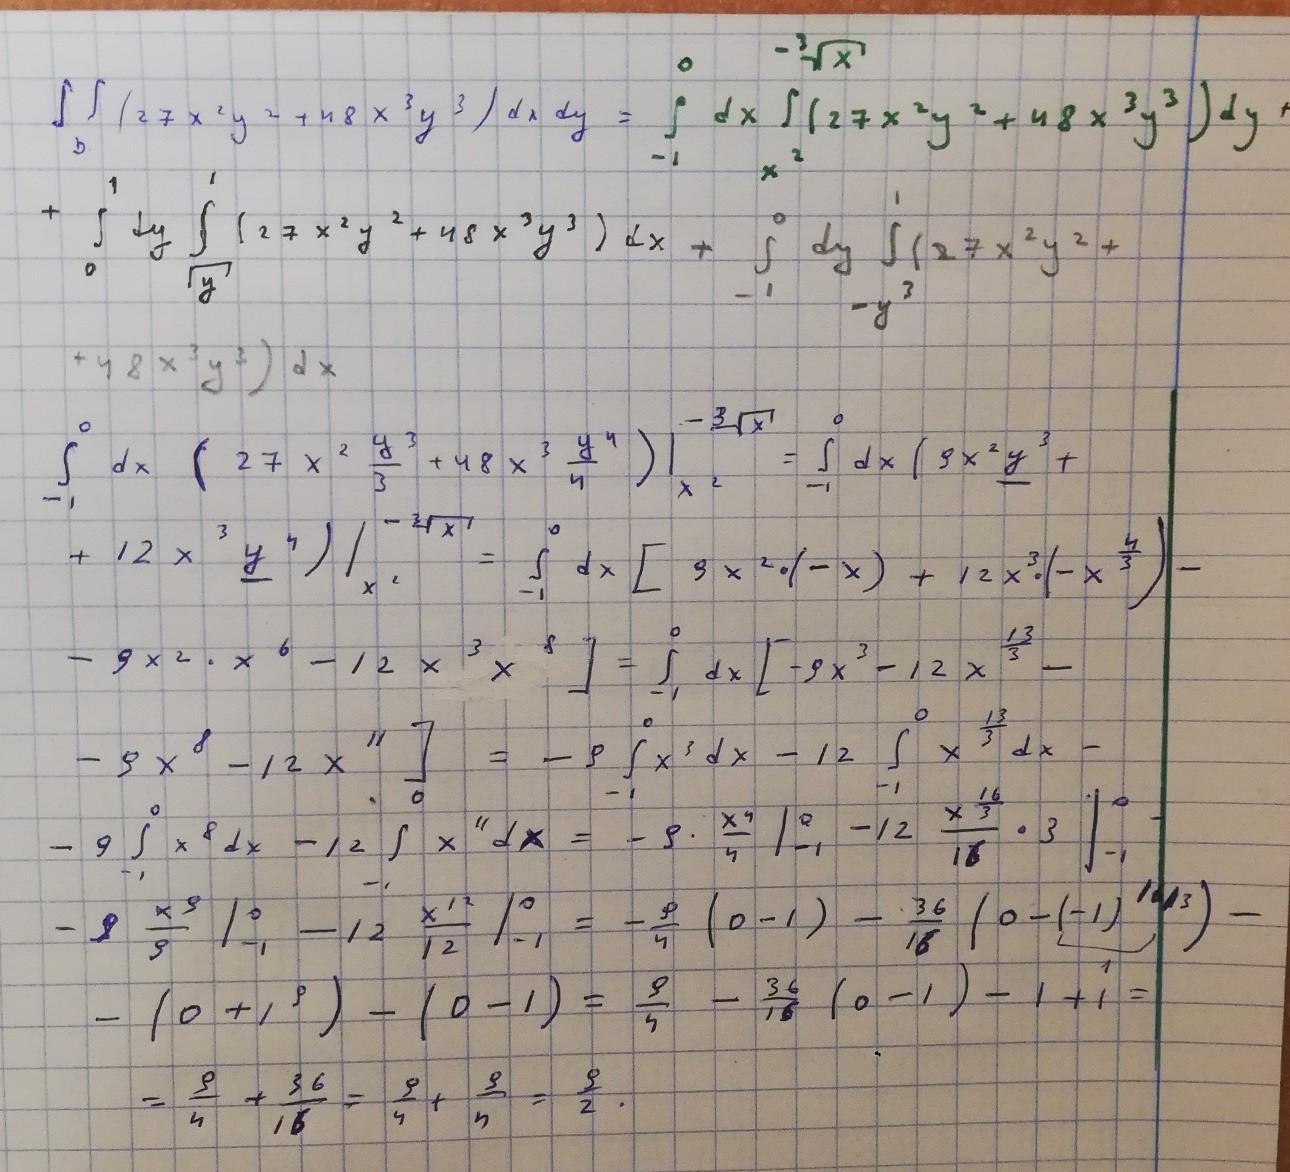 ∫∫_D (27x²y² + 48x³y³) dx dy = ∫_{-1}^{0} dx ∫_{x²}^{-³√x} (27x²y² + 48x³y³) dy +
+ ∫_{0}^{1} dy ∫_{√y}^{1} (27x²y² + 48x³y³) dx + ∫_{-1}^{0} dy ∫_{-y³}^{1} (27x²y² +
+ 48x³y³) dx
∫_{-1}^{0} dx (27x² y³/3 + 48x³ y⁴/4) |_{x²}^{-³√x} = ∫_{-1}^{0} dx (9x²y³ +
+ 12x³y⁴) |_{x²}^{-³√x} = ∫_{-1}^{0} dx [9x²·(-x) + 12x³·(-x^{4/3}) -
- 9x²·x⁶ - 12x³x⁸] = ∫_{-1}^{0} dx [-9x³ - 12x^{13/3} -
- 9x⁸ - 12x¹¹] = -9 ∫_{-1}^{0} x³dx - 12 ∫_{-1}^{0} x^{13/3} dx -
- 9 ∫_{-1}^{0} x⁸dx - 12 ∫_{-1}^{0} x¹¹dx = -9· x⁴/4 |_{-1}^{0} - 12 x^{16/3}/16 · 3 |_{-1}^{0} -
- 9 x⁹/9 |_{-1}^{0} - 12 x¹²/12 |_{-1}^{0} = -9/4 (0-1) - 36/16 (0-(-1)^{16/3}) -
- (0+1⁹) - (0-1) = 9/4 - 36/16 (0-1) - 1 + 1 =
= 9/4 + 36/16 = 9/4 + 9/4 = 9/2.